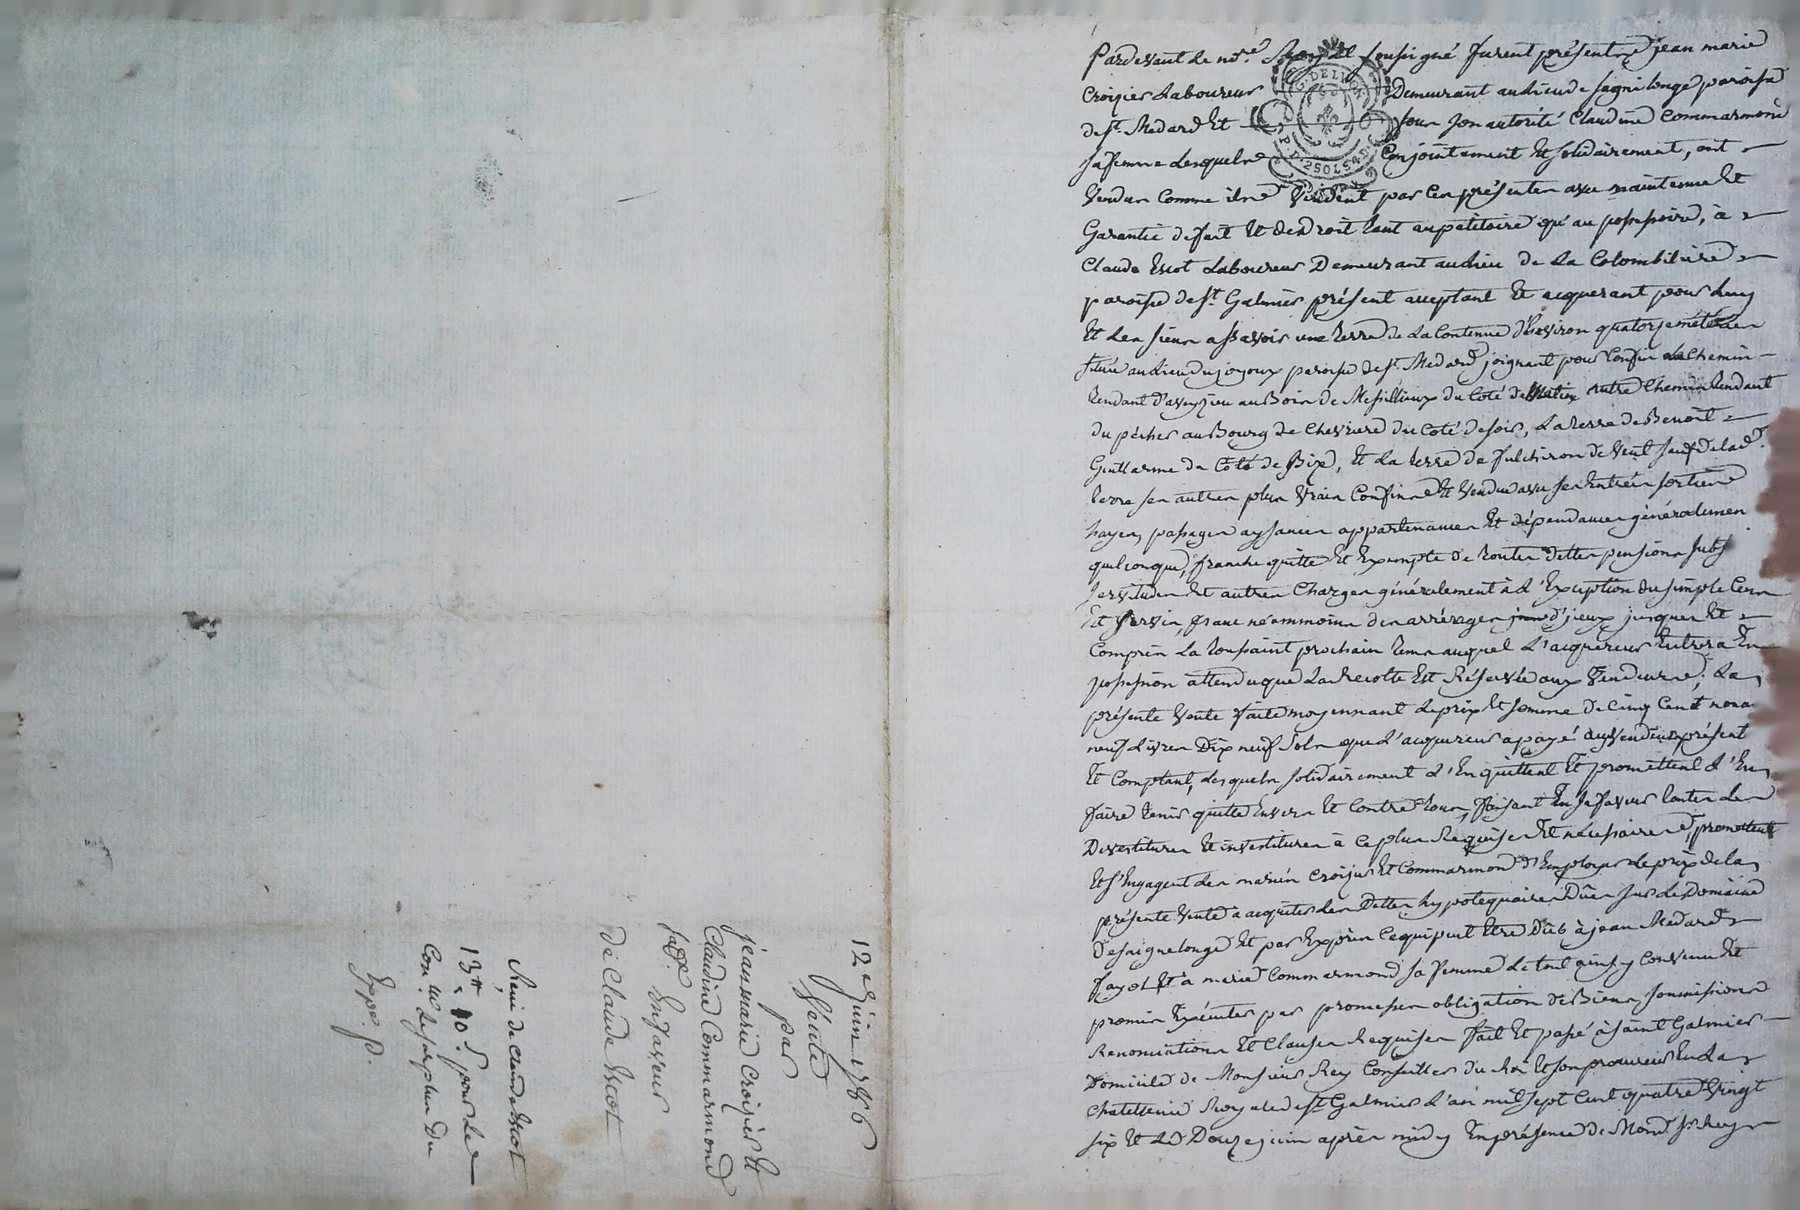 Pardevant Le no.re Royal soussigné furent présents jean marie
Croizier Laboureur Demeurant au Lieu de sagnilonge paroisse
de st. Medard Et sous son autorité Claudine Commarmond
sa femme Lesquels Conjointement Et solidairement, ont
Vendu Comme ils Vendent par Ces présentes avec maintenue Et
Garantie de fait Et de droit tant au petitoire qu'au possessoire, à
Claude Escot Laboureur Demeurant au Lieu de La Colombiliere
paroisse de st. Galmier présent acceptant Et acquerant pour Luy
Et Les siens assavoir une terre de La Contenue d'Environ quatorze méterées
située au Lieu du joyoux paroisse de st. Medard joignant pour Confin Le Chemin
tendant d'aveyzieu au Bois de Messilieux du Coté de Matin autre Chemin tendant
du pécher au Bourg de Chevriere du Coté de soir, La terre de Benoit
Guillarme du Coté de Bize, Et La terre de fulchiron de Vent sauf de lad.
terre ses autres plus Vrais Confins Et Vendue avec ses Entrées sorties
hayes, passages aysances appartenances Et dépendances généralemen
quelconque, franche quitte Et Exempte de toutes dettes pensions
servitudes Et autres Charges généralement à L'Exception du simple Cens
Et servis, franc néammoins des arrérages d'jceux jusques Et
Compris La toussaint prochain tems auquel L'acquereur Entrera En
possession attendu que La Recolte Est Réservée aux Vendeurs; La
présente Vente faite moyennant Le prix Et somme De Cinq Cent nona
neuf Livres Dix neuf sols que L'acquereur a payé aux vendeurs présent
Et Comptant, Lesquels solidairement L'En quittent Et promettent L'En
faire tenir quitte Envers Et Contre tous, faisant En sa faveur toutes Les
Devestitures Et investitures à ce plus Requises Et nécessaires, promettent
Et s'Engagent Les mariés Croizier Et Commarmond d'Employer Le prix de la
présente Vente à acquiter Les Dettes hypotequaires Dûes sur Le Domaine
de saignelonge Et par Exprès Ce qui peut Etre Dûb à jean Medard
fayot Et à marie Commarmond sa femme Le tout ainsy Convenu Et
promis Exécuter par promesses obligation de Biens, soumissions
Renonciations Et Clauses Requises fait Et passé à saint Galmier
Domicile de Monsieur Rey Conseiller du Roi Et son procureur En La
Chatellenie Royale de st. Galmier L'an mil sept Cent quatre Vingt
six Et Le Douze juin après midy En présence de Mond. sr. Rey
12e juin 1786
Vente
par
jean marie Croizier Et
Claudine Commarmond
sa fe. En faveur
de Claude Escot
Reçu de Claude Escot
13 10 s. pour Le
Con.le Le surplus Du